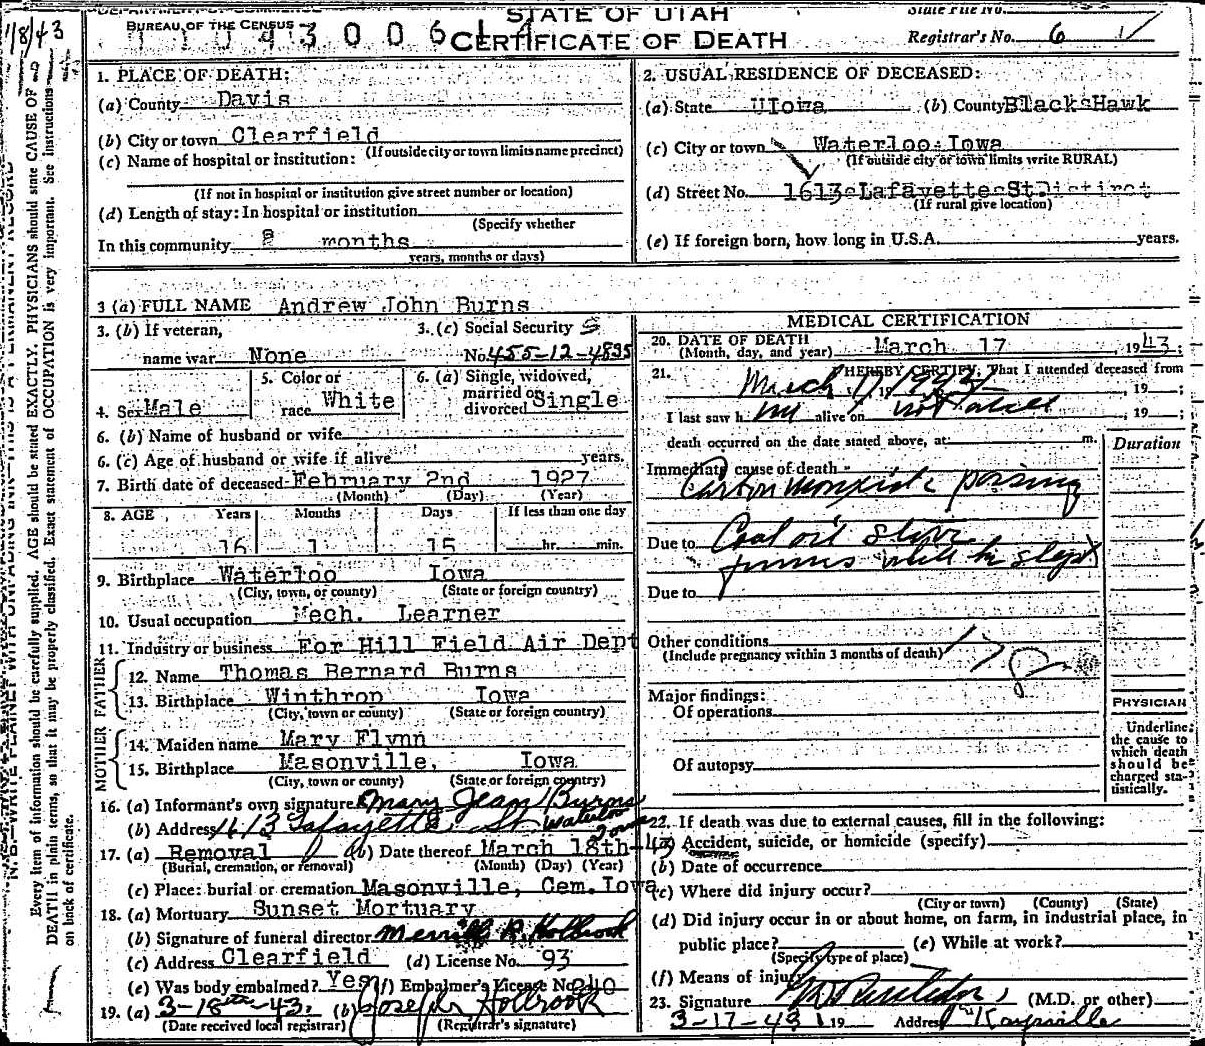 1/8/43
DEPARTMENT OF COMMERCE
BUREAU OF THE CENSUS
STATE OF UTAH
CERTIFICATE OF DEATH
State File No.
Registrar's No. 6
Every item of information should be carefully supplied. AGE should be stated EXACTLY. PHYSICIANS should state CAUSE OF
DEATH in plain terms, so that it may be properly classified. Exact statement of OCCUPATION is very important. See instructions
on back of certificate.
1. PLACE OF DEATH:
(a) County Davis
(b) City or town Clearfield
(If outside city or town limits name precinct)
(c) Name of hospital or institution:
(If not in hospital or institution give street number or location)
(d) Length of stay: In hospital or institution
(Specify whether
In this community 8 months
years, months or days)
2. USUAL RESIDENCE OF DECEASED:
(a) State Iowa (b) County Black Hawk
(c) City or town Waterloo Iowa
(If outside city or town limits write RURAL)
(d) Street No. 1613 Lafayette St
(If rural give location)
(e) If foreign born, how long in U.S.A. years.
3 (a) FULL NAME Andrew John Burns
3. (b) If veteran,
name war None
3. (c) Social Security
No. 455-12-4835
4. Sex Male
5. Color or
race White
6. (a) Single, widowed,
married or
divorced Single
6. (b) Name of husband or wife
6. (c) Age of husband or wife if alive years.
7. Birth date of deceased February 2nd 1927
(Month) (Day) (Year)
8. AGE Years Months Days If less than one day
16 1 15 hr. min.
9. Birthplace Waterloo Iowa
(City, town, or county) (State or foreign country)
10. Usual occupation Mech. Learner
11. Industry or business For Hill Field Air Dept
FATHER
12. Name Thomas Bernard Burns
13. Birthplace Winthrop Iowa
(City, town or county) (State or foreign country)
MOTHER
14. Maiden name Mary Flynn
15. Birthplace Masonville, Iowa
(City, town or county) (State or foreign country)
16. (a) Informant's own signature Mary Jean Burns
(b) Address 1613 Lafayette St Waterloo Iowa
17. (a) Removal (b) Date thereof March 18th-43
(Burial, cremation, or removal) (Month) (Day) (Year)
(c) Place: burial or cremation Masonville, Cem. Iowa
18. (a) Mortuary Sunset Mortuary
(b) Signature of funeral director Merrill R. Holbrook
(c) Address Clearfield (d) License No. 93
(e) Was body embalmed? Yes (f) Embalmer's License No. 240
19. (a) 3-18th-43. (b) Joseph Holbrook
(Date received local registrar) (Registrar's signature)
MEDICAL CERTIFICATION
20. DATE OF DEATH
(Month, day, and year) March 17, 1943;
21. I HEREBY CERTIFY, That I attended deceased from
March 17 1943, 19 ;
I last saw him alive on not alive, 19 ;
death occurred on the date stated above, at m.
Duration
Immediate cause of death
Carbon Monoxide poising
Due to Coal oil stove
fumes while he slept
Due to
Other conditions
(Include pregnancy within 3 months of death)
178
Major findings:
Of operations
Of autopsy
PHYSICIAN
Underline
the cause to
which death
should be
charged sta-
tistically.
22. If death was due to external causes, fill in the following:
(a) Accident, suicide, or homicide (specify)
(b) Date of occurrence
(c) Where did injury occur?
(City or town) (County) (State)
(d) Did injury occur in or about home, on farm, in industrial place, in
public place? (e) While at work?
(Specify type of place)
(f) Means of injury
23. Signature (M.D. or other)
3-17-43 19 Address Kaysville